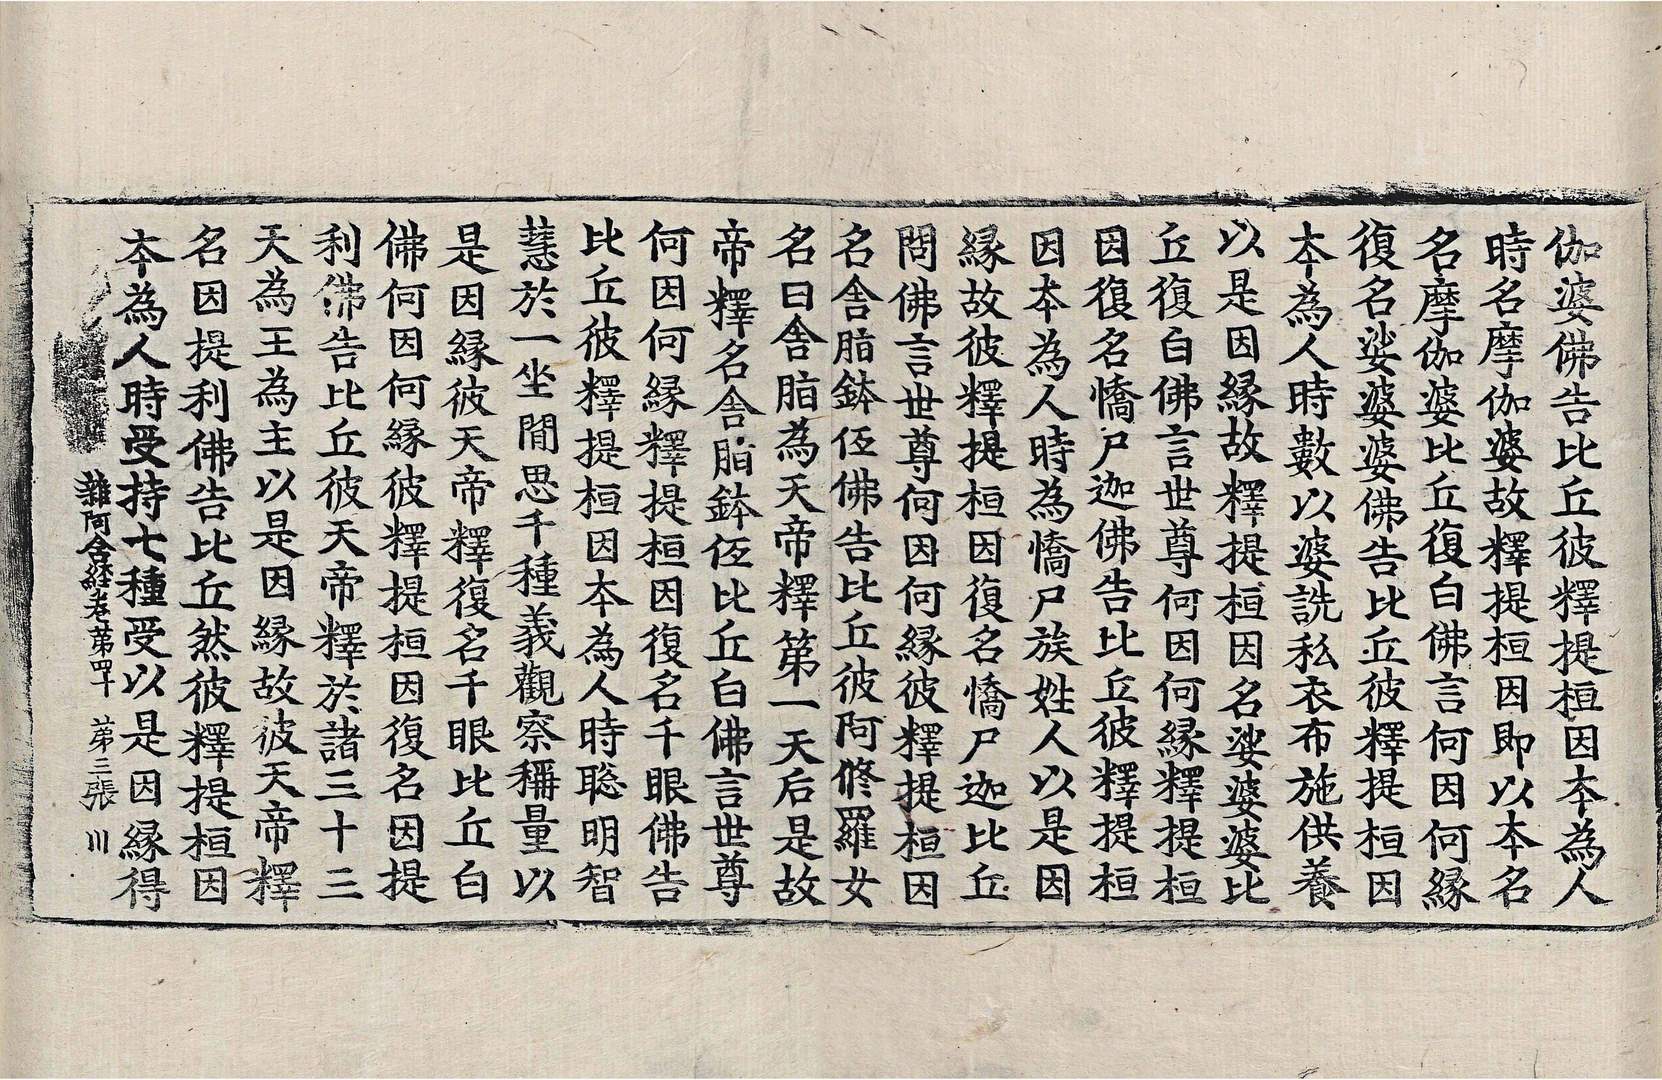 伽婆佛告比丘彼釋提桓因本為人
時名摩伽婆故釋提桓因即以本名
名摩伽婆比丘復白佛言何因何緣
復名娑婆婆佛告比丘彼釋提桓因
本為人時數以婆詵私衣布施供養
以是因緣故釋提桓因名娑婆婆比
丘復白佛言世尊何因何緣釋提桓
因復名憍尸迦佛告比丘彼釋提桓
因本為人時為憍尸族姓人以是因
緣故彼釋提桓因復名憍尸迦比丘
問佛言世尊何因何緣彼釋提桓因
名舍脂鉢低佛告比丘彼阿修羅女
名曰舍脂為天帝釋第一天后是故
帝釋名舍脂鉢低比丘白佛言世尊
何因何緣釋提桓因復名千眼佛告
比丘彼釋提桓因本為人時聦明智
慧於一坐閒思千種義觀察稱量以
是因緣彼天帝釋復名千眼比丘白
佛何因何緣彼釋提桓因復名因提
利佛告比丘彼天帝釋於諸三十三
天為王為主以是因緣故彼天帝釋
名因提利佛告比丘然彼釋提桓因
本為人時受持七種受以是因緣得
雜阿含經卷第四十 第三張 川